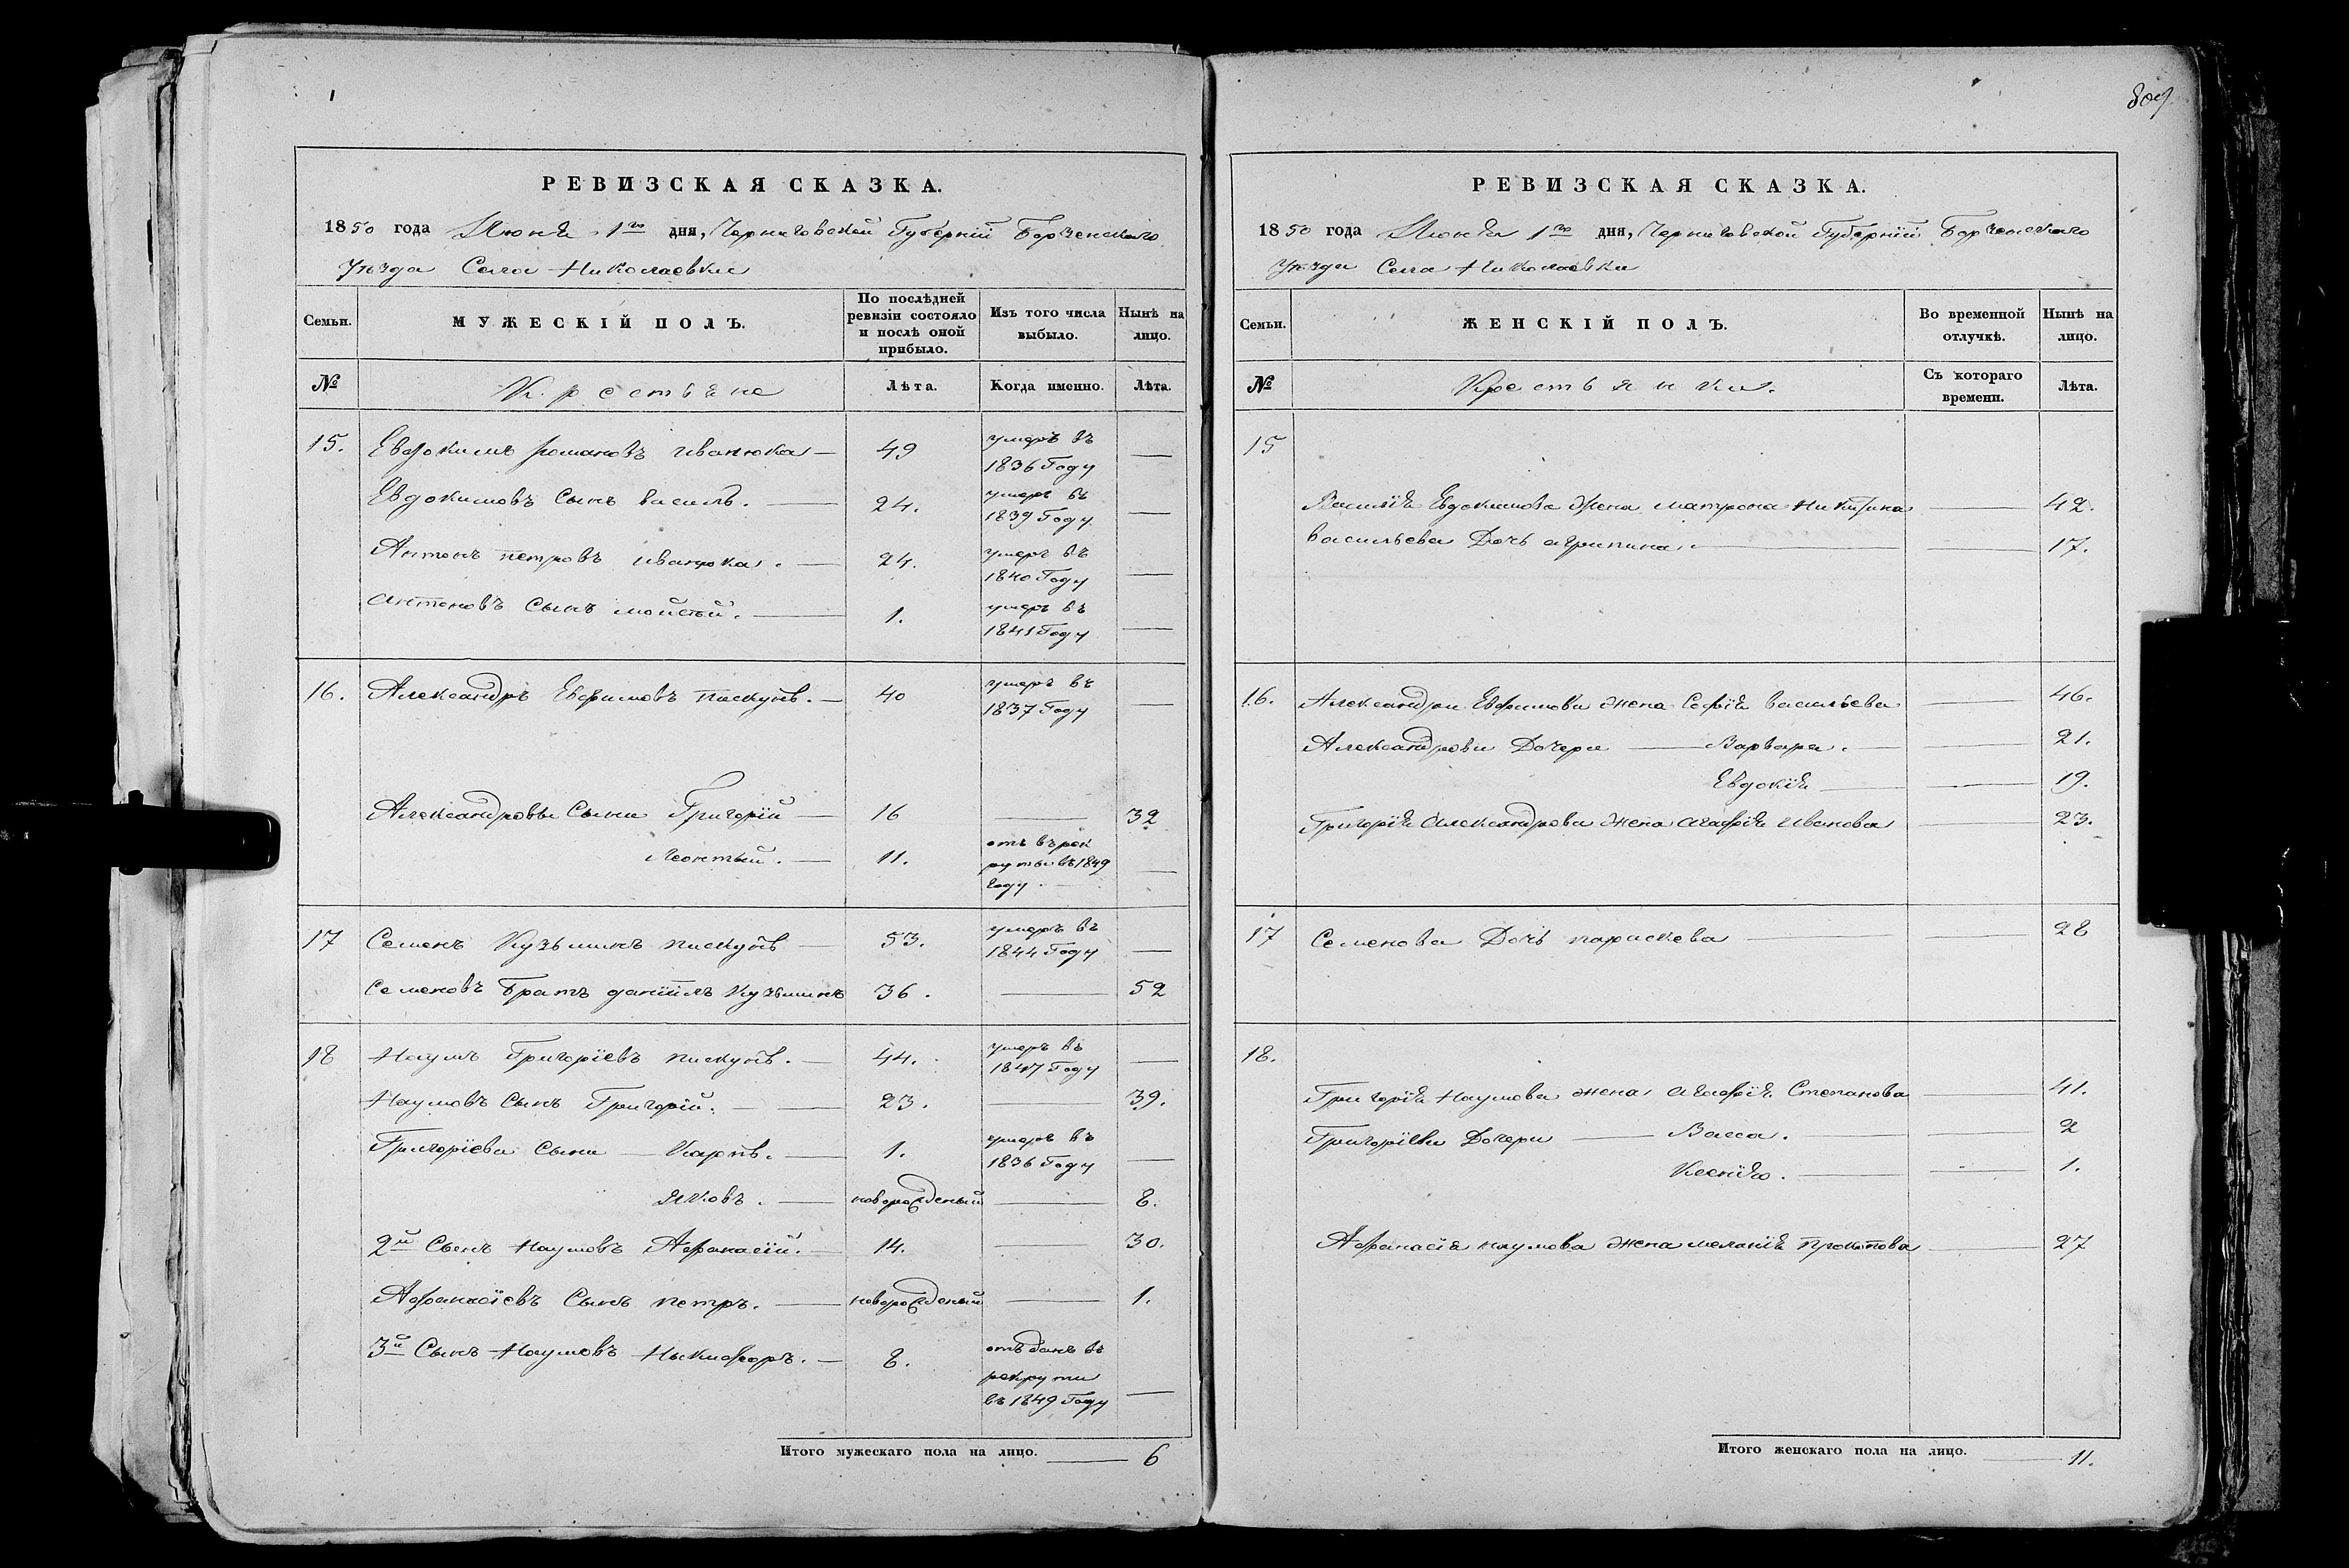 809
РЕВИЗСКАЯ СКАЗКА.
1850 года Июня 1го дня, Черниговской Губерніи Борзенскаго
Уѣзда Села Николаевки
Семьи. МУЖЕСКІЙ ПОЛЪ. По послѣдней ревизіи состояло и послѣ оной прибыло. Изъ того числа выбыло. Нынѣ на лицо.
№ Крестьяне Лѣта. Когда именно. Лѣта.
15. Евдокимъ романовъ иванюка — 49 умеръ въ 1836 Году —
Евдокимовъ Сынъ василь. — 24. умеръ въ 1839 Году —
Антонъ петровъ иванюка. — 24. умеръ въ 1840 Году —
антоновъ Сынъ мойсей. — 1. умеръ въ 1841 Году —
16. Александръ Ефимовъ пискунъ. — 40 умеръ въ 1837 Году —
Александровы Сыни Григорій — 16 — 32
Леонтый. — 11. отъ въ рек руты въ 1849 году. —
17 Семенъ Кузьминъ пискунъ — 53. умеръ въ 1844 Году —
Семеновъ Братъ даніилъ Кузьминъ 36. — 52
18 Наумъ Григоріевъ пискунъ. — 44. умеръ въ 1847 Году —
Наумовъ Сынъ Григорій. — 23. — 39.
Григоріева Сыни — Карпъ. — 1. умеръ въ 1836 Году —
яковъ. — новорожденый — 8.
2й Сынъ Наумовъ Афанасій. — 14. — 30.
Афанасіевъ Сынъ петръ. — новорожденый — 1.
3й Сынъ Наумовъ Ныкифоръ. — 8. отъданъ въ рекруты въ 1849 Году —
Итого мужескаго пола на лицо. — 6
РЕВИЗСКАЯ СКАЗКА.
1850 года Июня 1го дня, Черниговской Губерніи Борзенскаго
Уѣзда Села Николаевки
Семьи. ЖЕНСКІЙ ПОЛЪ. Во временной отлучкѣ. Нынѣ на лицо.
№ Крестьянки. Съ котораго времени. Лѣта.
15
Василія Евдокимова Жена матрона никитина — 42.
васильева Дочь агрипина. — 17.
16. Александра Ефимова жена Софія васильева — 46.
Александрови Дочери — Варвара. — 21.
Евдокія — 19.
Григорія Александрова жена агафія иванова — 23.
17 Семенова Дочь параскева — 28
18.
Григорія Наумова жена, агафія Степанова — 41.
Григоріеви Дочери — Васса. — 2
Ксенія. — 1.
Афанасія наумова жена меланія прокопова — 27
Итого женскаго пола на лицо. — 11.